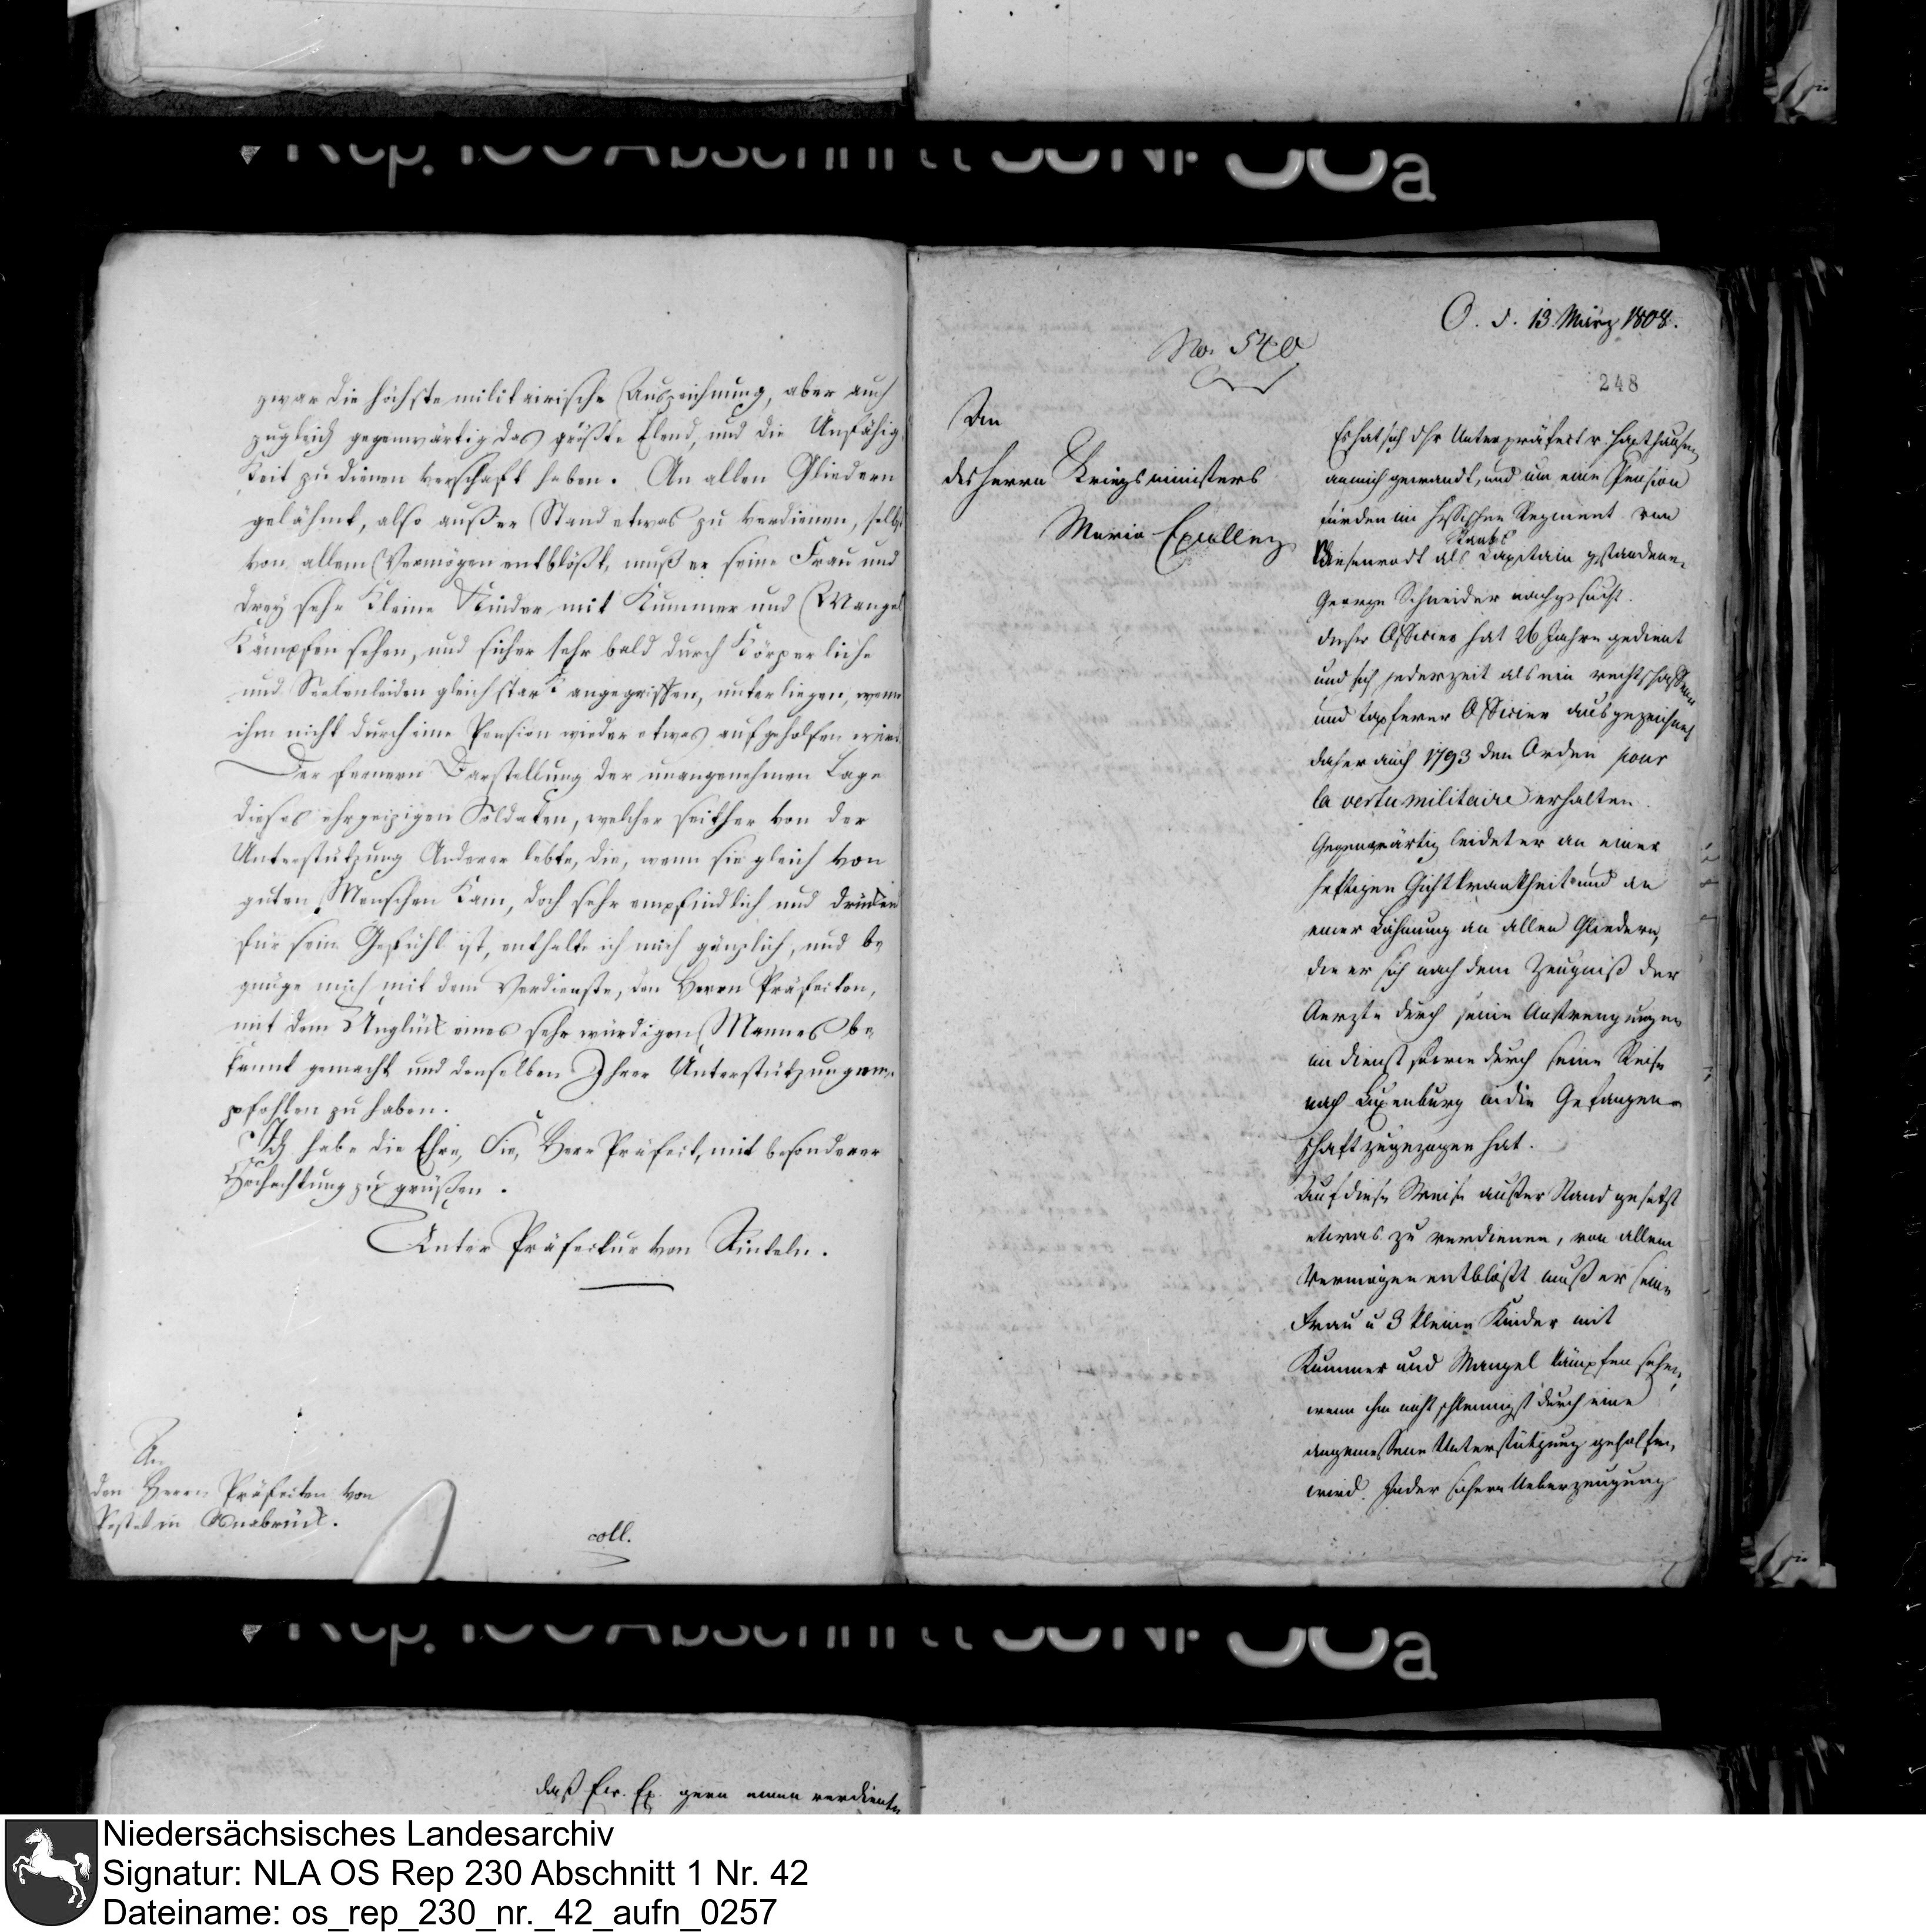 Rep. 100 Abschnitt 38 Nr 36a
zwar die höchste militairische Auszeichnung, aber auch
zugleich gegenwärtig das größte Elend, und die Unfähig
keit zu dienen verschaft haben. An allen Gliedern
gelähmt, also außer Stand etwas zu verdienen, selbst
von allem Vermögen entblößt, muß er seine Frau und
drey sehr kleine Kinder mit Kummer und Mangel
kämpfen sehen, und sicher sehr bald durch körperliche
und Seelenleiden gleich stark angegriffen, unterliegen, wenn
ihm nicht durch eine Pension wieder etwas aufgeholfen wird.
Der fernern Darstellung der unangenehmen Lage
dieses ehrgeizigen Soldaten, welcher seither von der
Unterstützung Anderer lebte, die, wenn sie gleich von
guten Menschen kam, doch sehr empfindlich und drückend
für sein Gefühl ist, enthalte ich mich gänzlich, und be
gnüge mich mit dem Verdienste, den Herrn Präfeckten,
mit dem Unglück eines sehr würdigen Mannes be
kannt gemacht und denselben Ihrer Unterstützung em
pfohlen zu haben.
Ich habe die Ehre, Sie, Herr Präfeckt, mit besonderer
Hochachtung zu grüßen.
Unter Präfecktur von Rinteln.
An
den Herrn Präfeckten von
Pestel in Osnabrück.
coll.
O. d. 13 März 1808.
No. 540
248
An
des Herrn Kriegsministers
Morio Excellenz
Es hat sich dHr Unterpräfeckt v. Haxthausen
an mich gewandt, und um eine Pension
für den im Hessischen Regiment von
Staabs
Biesenrodt als Capitain gestandenen
George Schneider nachgesucht.
dieser Officier hat 26 Jahre gedient
und sich jederzeit als ein rechtschaffener
und tapferer Officier ausgezeichnet
daher auch 1793 den Orden pour
la vertu militaire erhalten.
Gegenwärtig leidet er an einer
heftigen Gichtkrankheit und an
einer Lähmung an allen Gliedern,
die er sich nach dem Zeugniß der
Aerzte durch seine Anstrengungen
im Dienst sowie durch seine Reise
nach Luxenburg in die Gefangen
schaft zugezogen hat.
Auf diese Weise außer Stand gesetzt
etwas zu verdienen, von allem
Vermögen entblößt muß er seine
Frau u 3 kleine Kinder mit
Kummer und Mangel kämpfen sehen,
wenn ihm nicht schleunigst durch eine
angemessene Unterstützung geholfen
wird. In der sichern Ueberzeugung
daß Ew. Ex. gern einen verdienten
Niedersächsisches Landesarchiv
Signatur: NLA OS Rep 230 Abschnitt 1 Nr. 42
Dateiname: os_rep_230_nr._42_aufn_0257